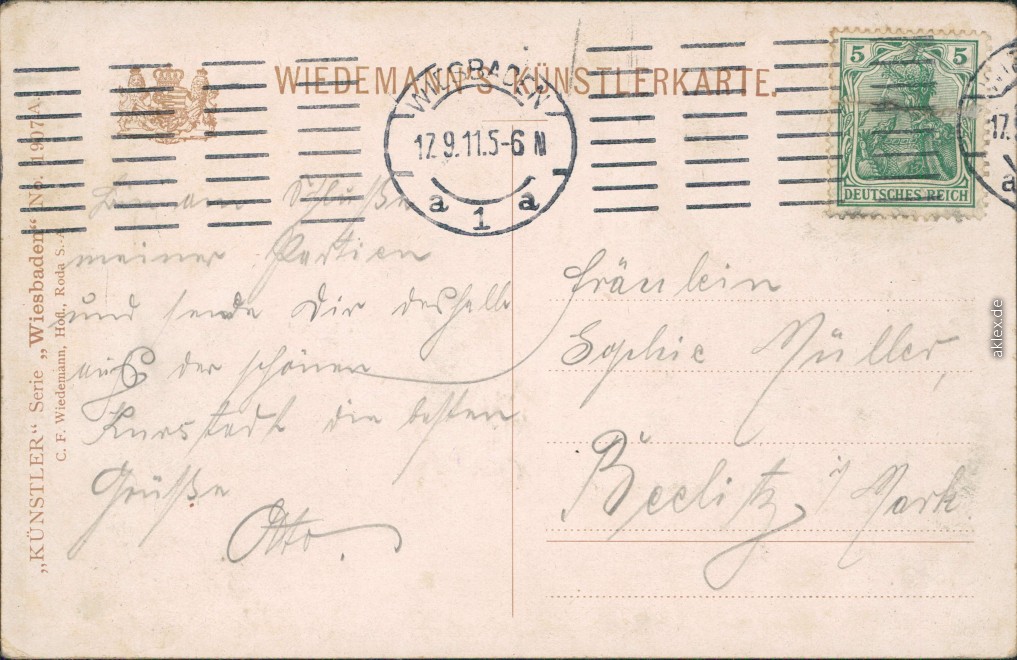 WIEDEMANN'S KÜNSTLERKARTE.
WIESBADEN
17.9.11.5-6 N
a 1 a
5 5
DEUTSCHES REICH
17.
a
„KÜNSTLER“ Serie „Wiesbaden“ No. 1907 A.
C. F. Wiedemann, Hofl., Roda S.-A.
Bin am Schluße
meiner Partien
und sende Dir deshalb
aus der schönen
Kurstadt die besten
Grüße
Otto.
Fräulein
Sophie Müller,
Beelitz i/ Mark.
aklex.de